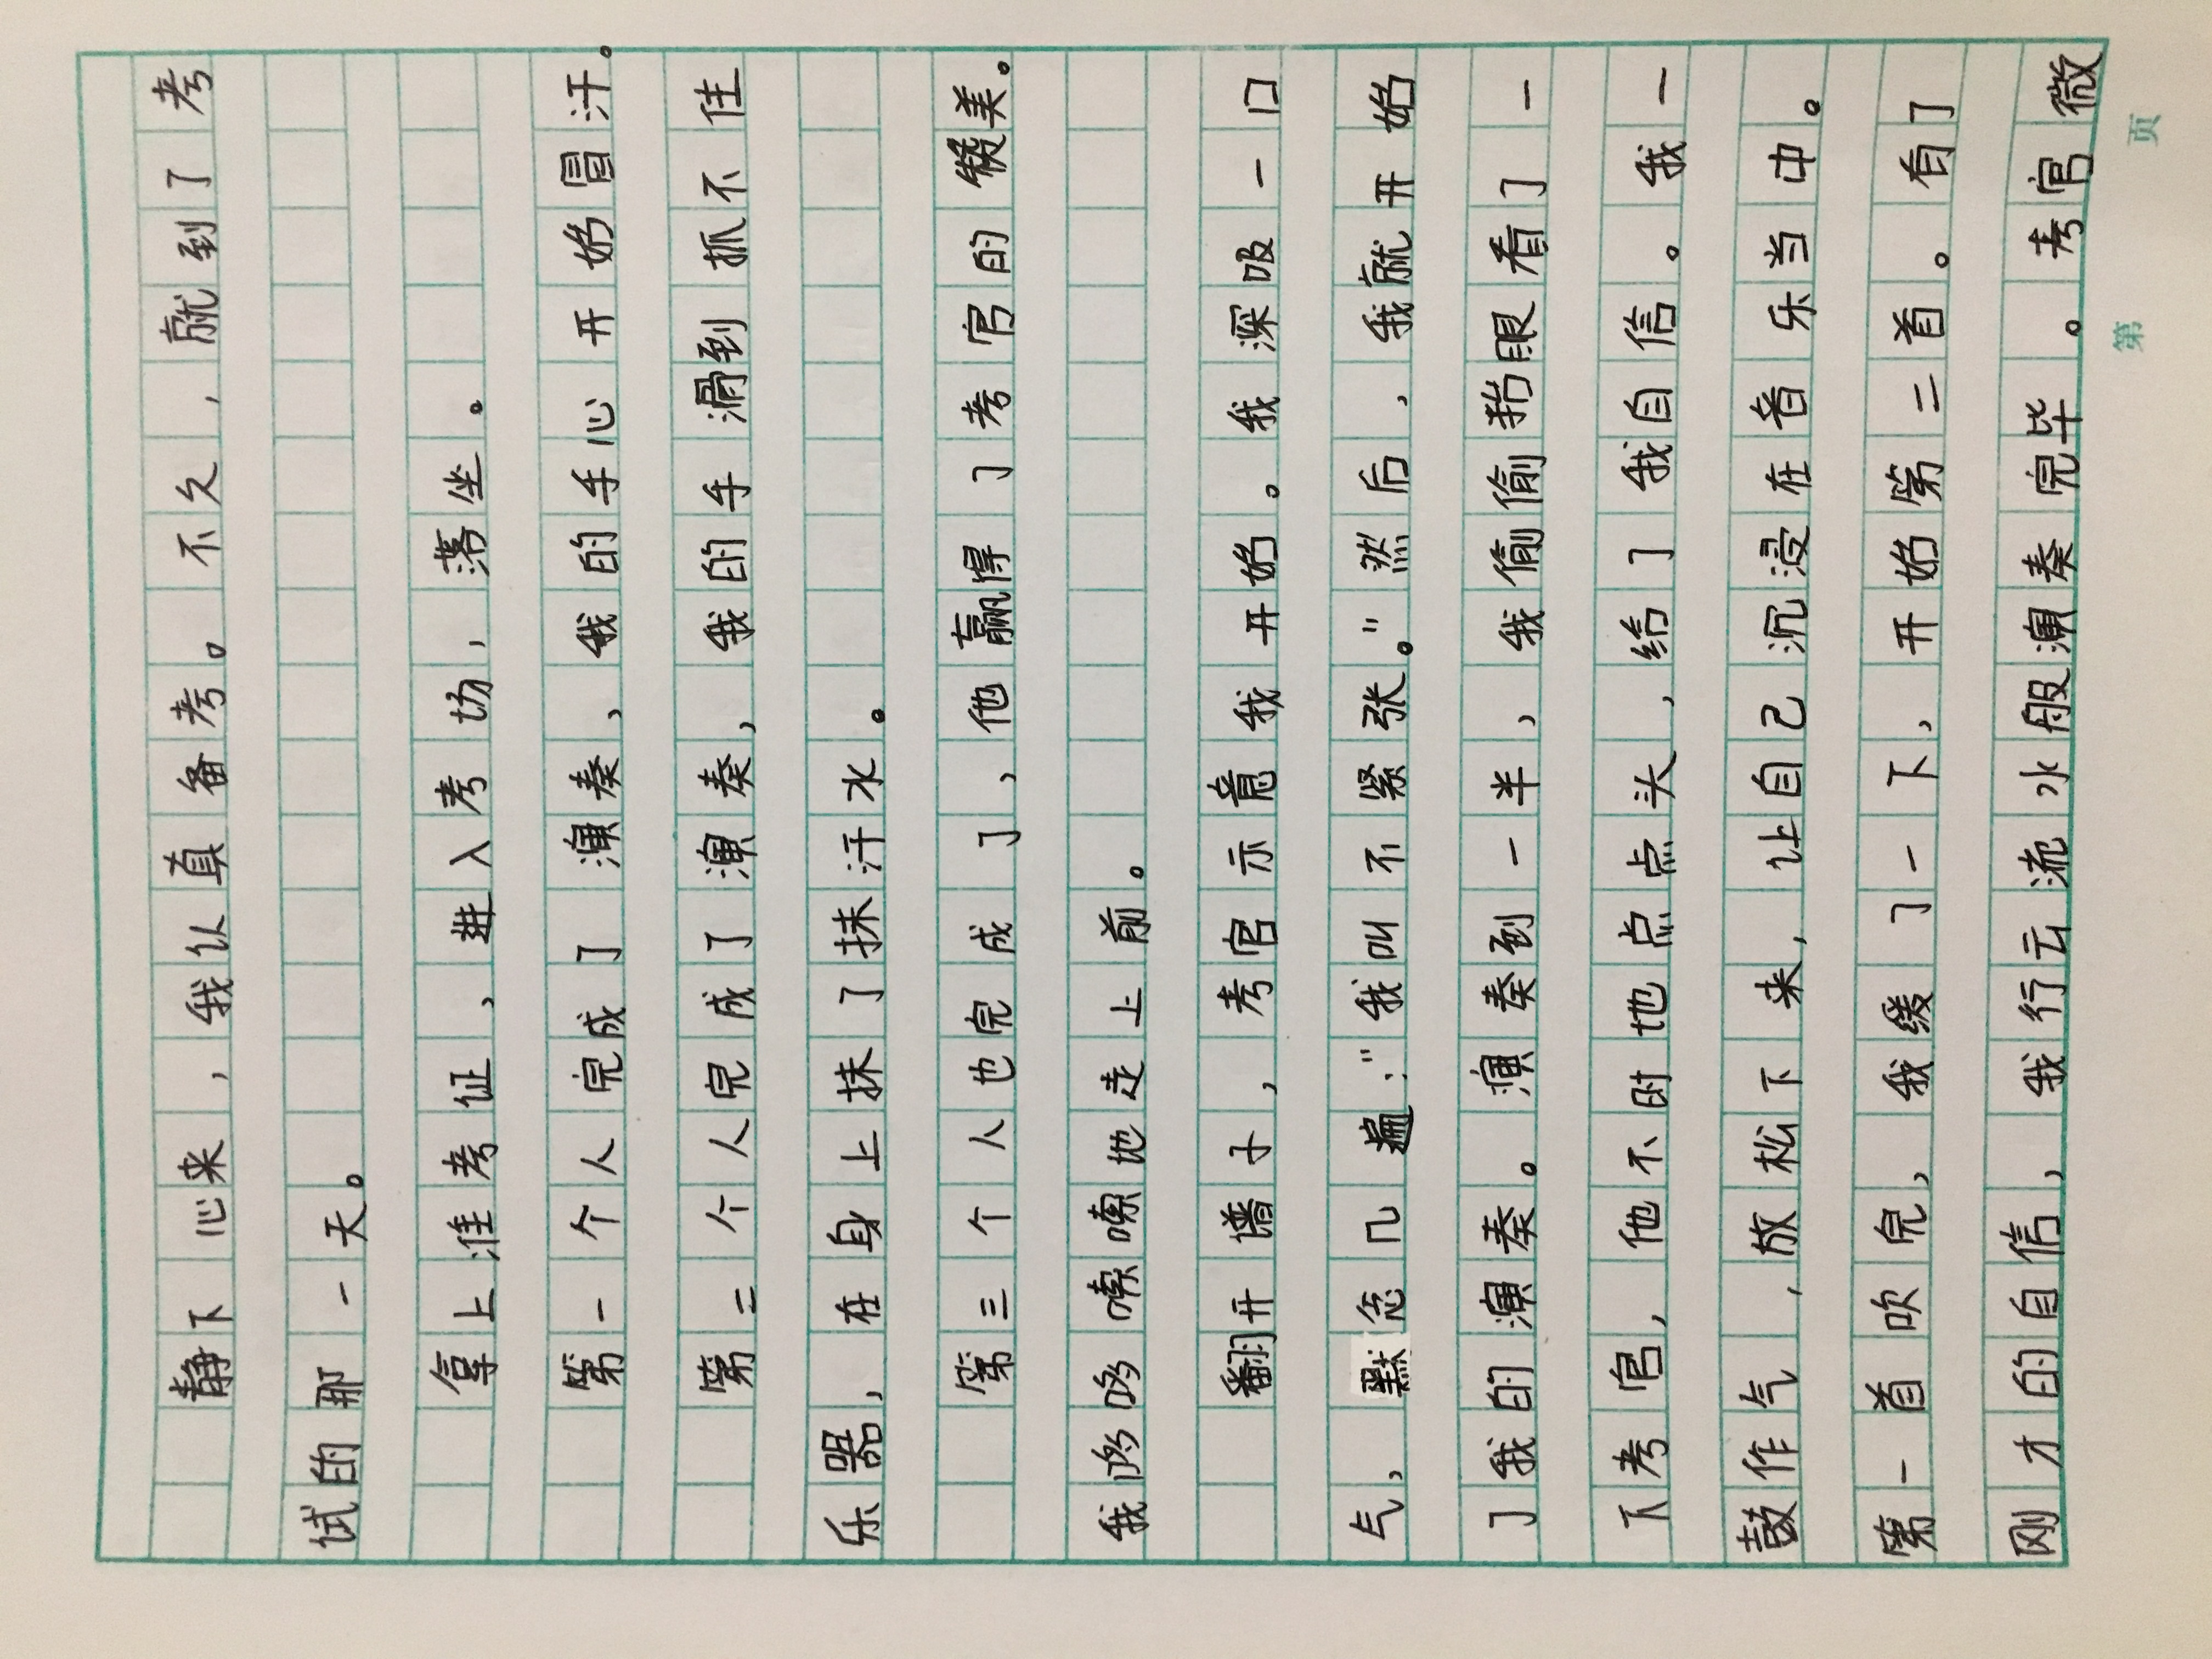 静下心来，我认真备考。不久，就到了考
试的那一天。
拿上准考证，进入考场，落坐。
第一个人完成了演奏，我的手心开始冒汗。
第二个人完成了演奏，我的手滑到抓不住
乐器，在身上抹了抹汗水。
第三个人也完成了，他赢得了考官的赞美。
我哆哆嗦嗦地走上前。
翻开谱子，考官示意我开始。我深吸一口
气，默念几遍："我叫不紧张。"然后，我就开始
了我的演奏。演奏到一半，我偷偷抬眼看了一
下考官，他不时地点点头，给了我自信。我一
鼓作气，放松下来，让自己沉浸在音乐当中。
第一首吹完，我缓了一下，开始第二首。有了
刚才的自信，我行云流水般演奏完毕。考官微
第 页